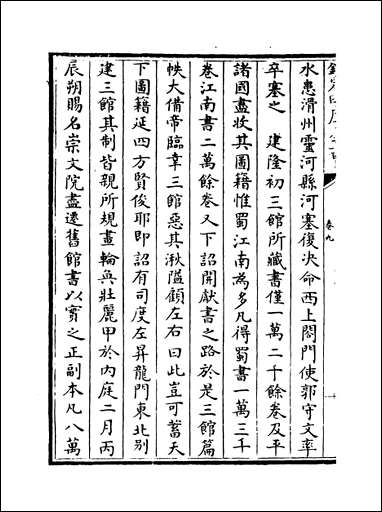 水患滑州靈河縣河塞復决命西上閤門使郭守文率
卒塞之 建隆初三館所藏書僅一萬二千餘卷及平
諸國盡收其圖籍惟蜀江南為多凡得蜀書一萬三千
卷江南書二萬餘卷又下詔開獻書之路於是三館篇
帙大備帝臨幸三館惡其湫隘顧左右曰此豈可蓄天
下圖籍延四方賢俊耶即詔有司度左昇龍門東北别
建三館其制皆親所規畫輪奐壯麗甲於内庭二月丙
辰朔賜名崇文院盡遷舊館書以實之正副本凡八萬
卷九